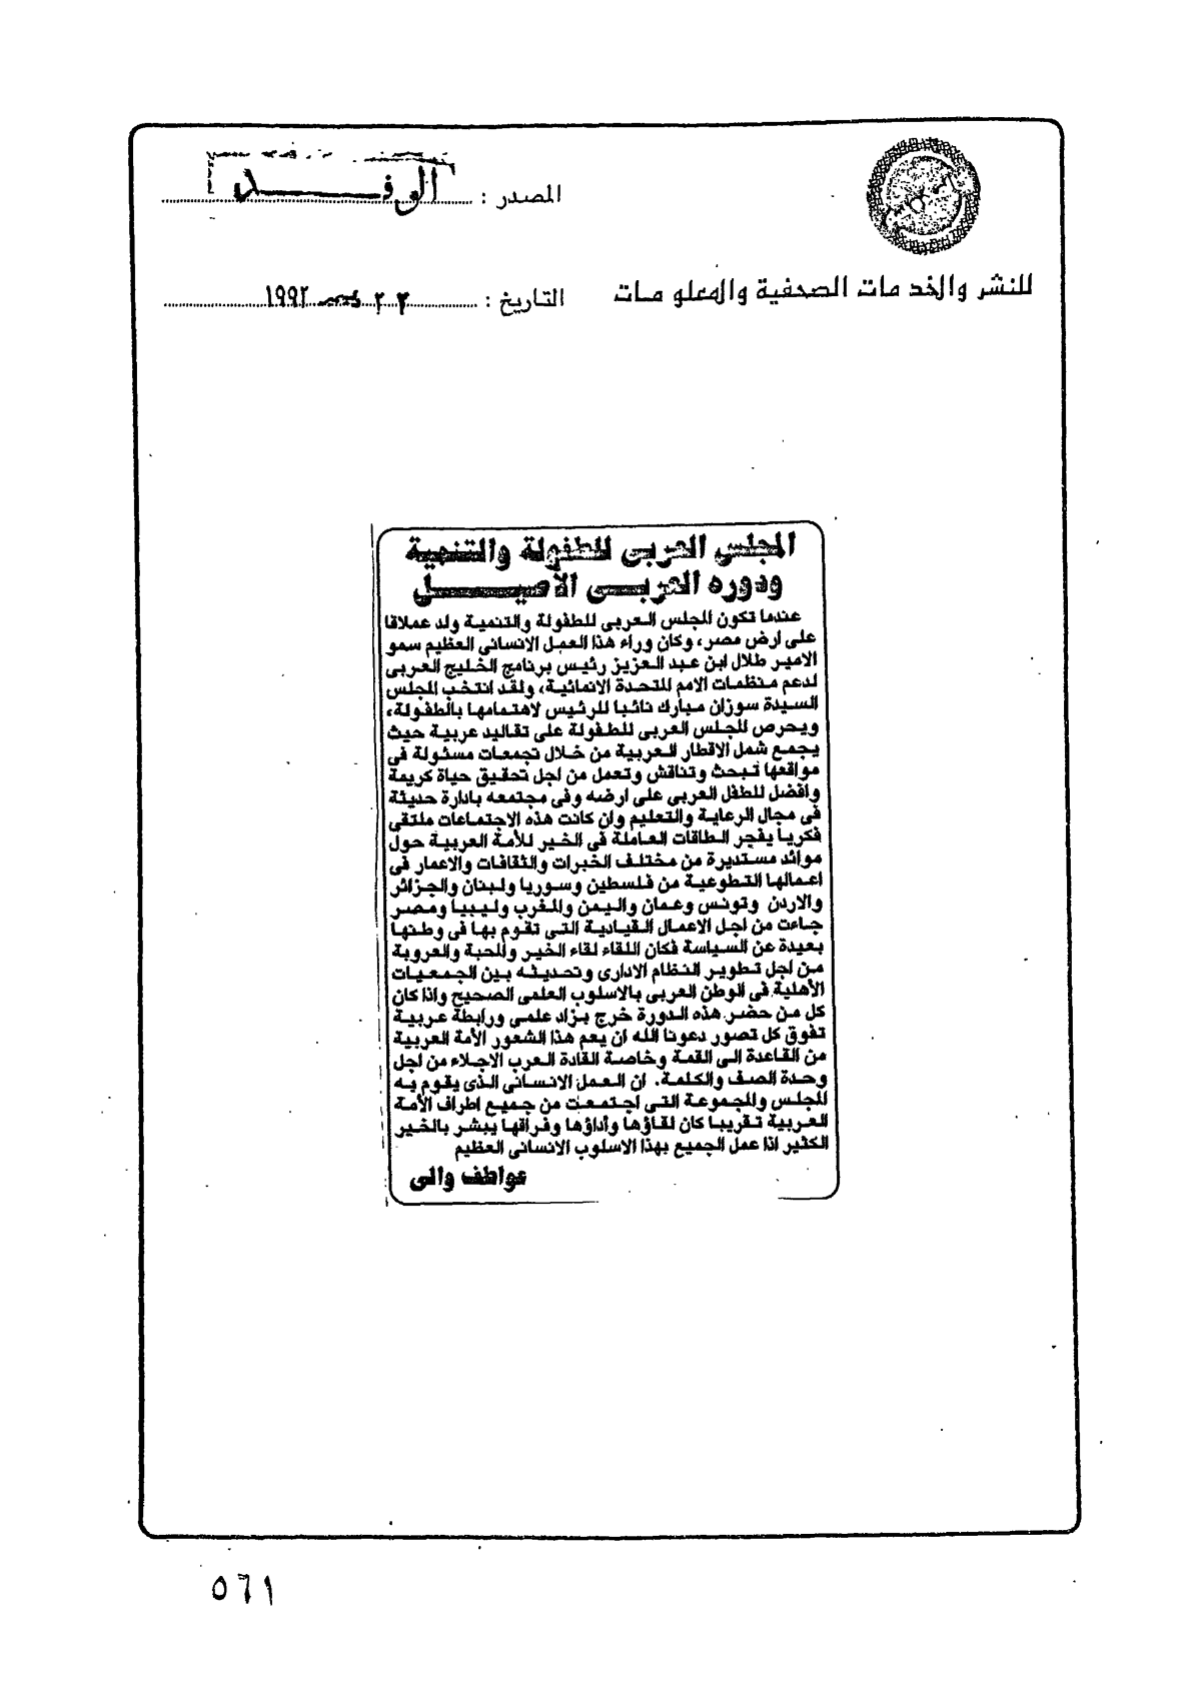 المصدر : الوفد
للنشر والخدمات الصحفية والمعلومات
التاريخ : ٢٢ ديسمبر ١٩٩٢
المجلس العربى للطفولة والتنمية
ودوره العربى الأصيل
عندما تكون المجلس العربى للطفولة والتنمية ولد عملاقا
على ارض مصر، وكان وراء هذا العمل الانسانى العظيم سمو
الامير طلال ابن عبد العزيز رئيس برنامج الخليج العربى
لدعم منظمات الامم المتحدة الانمائية، ولقد انتخب المجلس
السيدة سوزان مبارك نائبا للرئيس لاهتمامها بالطفولة،
ويحرص المجلس العربى للطفولة على تقاليد عربية حيث
يجمع شمل الاقطار العربية من خلال تجمعات مسئولة فى
مواقعها تبحث وتناقش وتعمل من اجل تحقيق حياة كريمة
وافضل للطفل العربى على ارضه وفى مجتمعه بادارة حديثة
فى مجال الرعاية والتعليم وان كانت هذه الاجتماعات ملتقى
فكريا يفجر الطاقات العاملة فى الخير للأمة العربية حول
موائد مستديرة من مختلف الخبرات والثقافات والاعمار فى
اعمالها التطوعية من فلسطين وسوريا ولبنان والجزائر
والاردن وتونس وعمان واليمن والمغرب وليبيا ومصر
جاءت من اجل الاعمال القيادية التى تقوم بها فى وطنها
بعيدة عن السياسة فكان اللقاء لقاء الخير والمحبة والعروبة
من اجل تطوير النظام الادارى وتحديثه بين الجمعيات
الأهلية فى الوطن العربى بالاسلوب العلمى الصحيح واذا كان
كل من حضر هذه الدورة خرج بزاد علمى ورابطة عربية
تفوق كل تصور دعونا الله ان يعم هذا الشعور الأمة العربية
من القاعدة الى القمة وخاصة القادة العرب الاجلاء من اجل
وحدة الصف والكلمة. ان العمل الانسانى الذى يقوم به
المجلس والمجموعة التى اجتمعت من جميع اطراف الأمة
العربية تقريبا كان لقاؤها وأداؤها وفراقها يبشر بالخير
الكثير اذا عمل الجميع بهذا الاسلوب الانسانى العظيم
عواطف والى
٥٦١